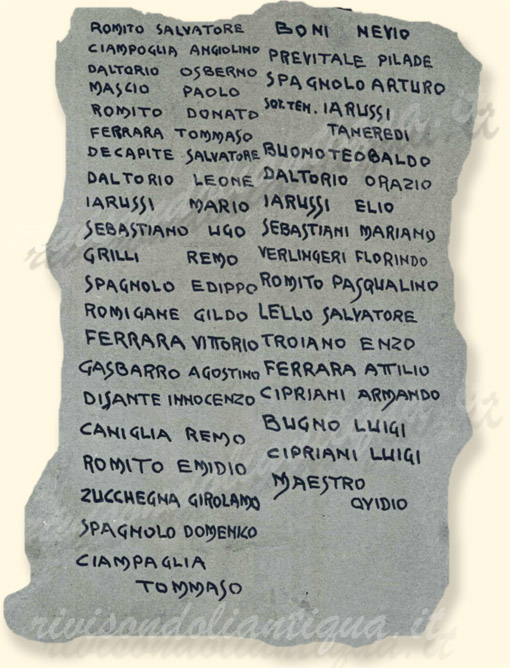 ROMITO SALVATORE
CIAMPOGLIA ANGIOLINO
DALTORIO OSBERNO
MASCIO PAOLO
ROMITO DONATO
FERRARA TOMMASO
DECAPITE SALVATORE
DALTORIO LEONE
IARUSSI MARIO
SEBASTIANO UGO
GRILLI REMO
SPAGNOLO EDIPPO
ROMIGANE GILDO
FERRARA VITTORIO
GASBARRO AGOSTINO
DISANTE INNOCENZO
CANIGLIA REMO
ROMITO EMIDIO
ZUCCHEGNA GIROLAMO
SPAGNOLO DOMENICO
CIAMPAGLIA
TOMMASO
BONI NEVIO
PREVITALE PILADE
SPAGNOLO ARTURO
SOT.TEN. IARUSSI
TANEREDI
BUONO TEOBALDO
DALTORIO ORAZIO
IARUSSI ELIO
SEBASTIANI MARIANO
VERLINGERI FLORINDO
ROMITO PASQUALINO
LELLO SALVATORE
TROIANO ENZO
FERRARA ATTILIO
CIPRIANI ARMANDO
BUGNO LUIGI
CIPRIANI LUIGI
MAESTRO
OVIDIO
rivisondoliantiqua.it